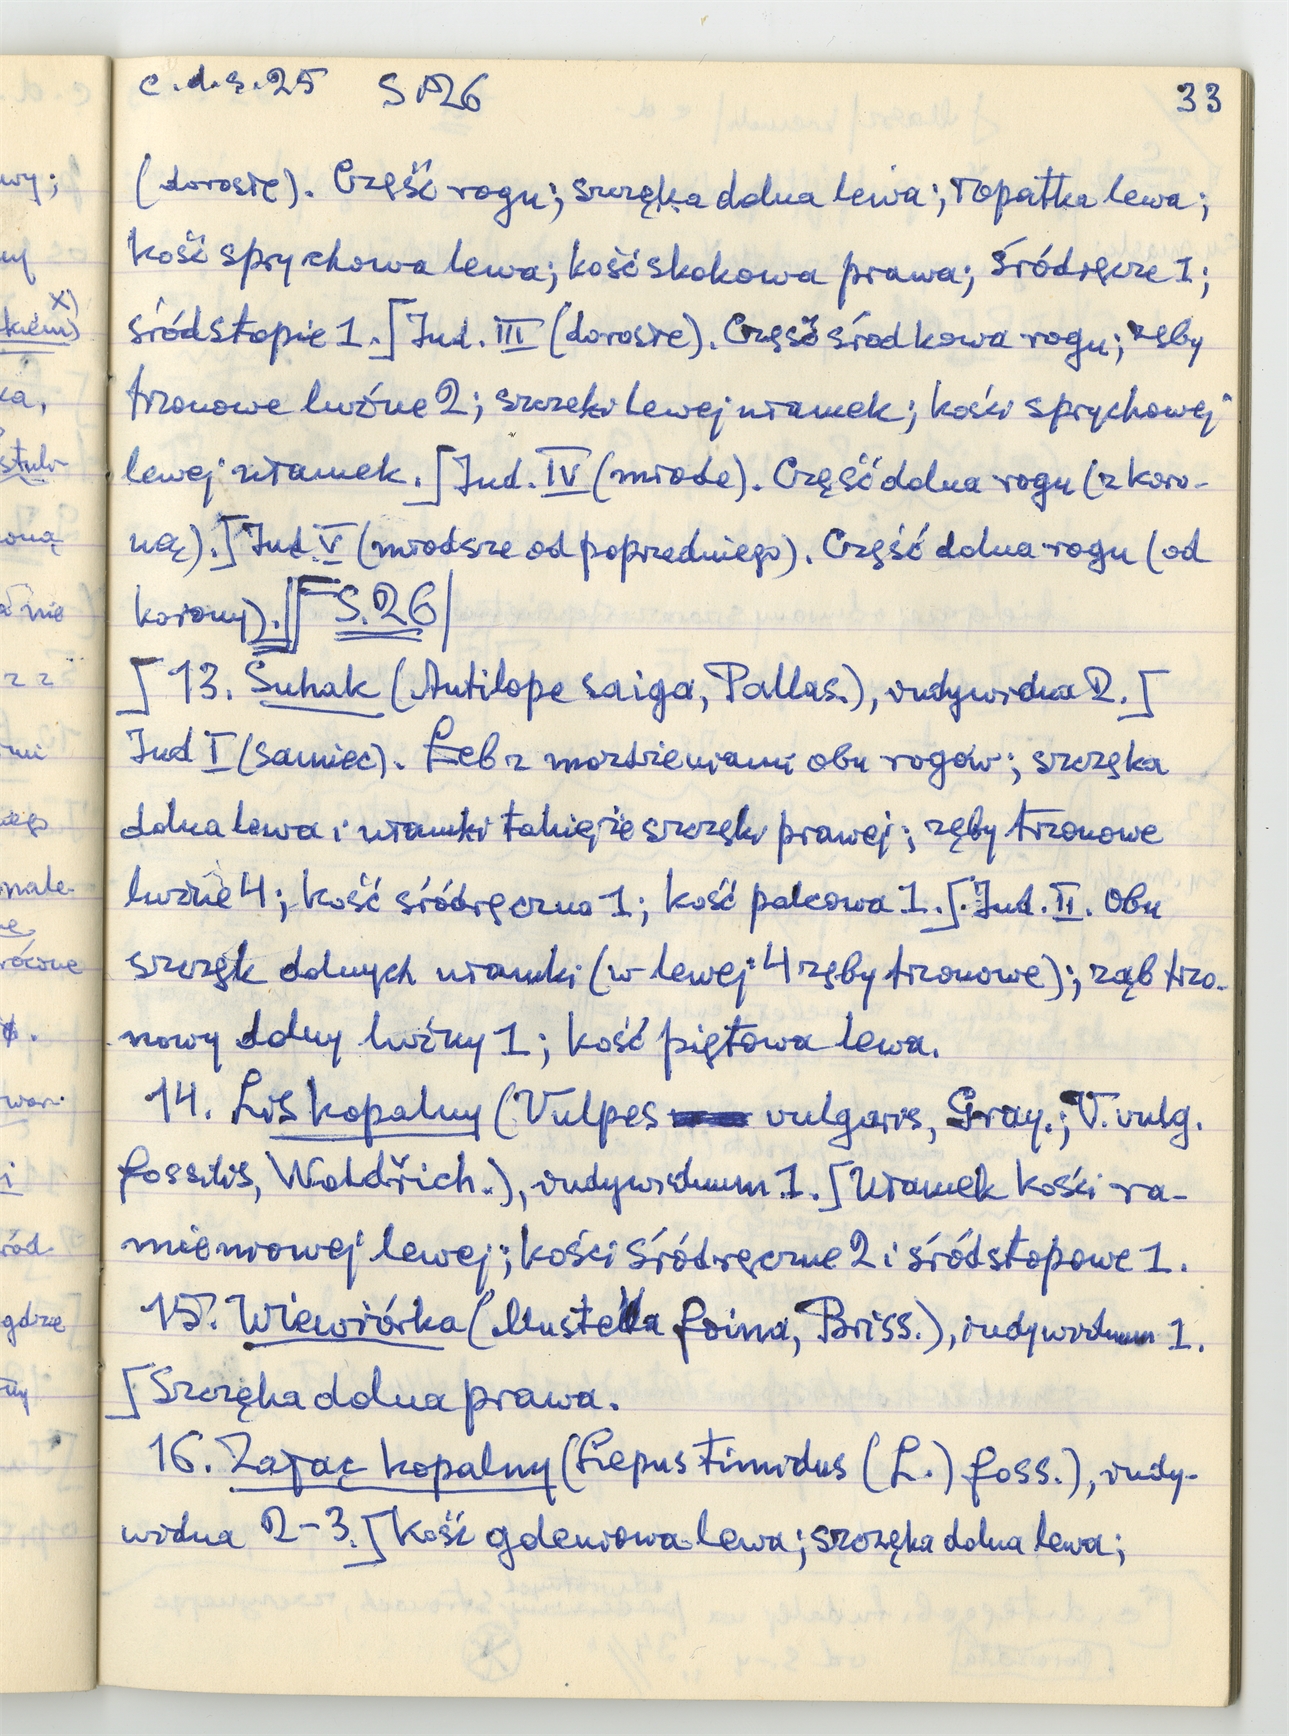 c.d.s.25 S.26 33
(dorosłe). Część rogu; szczęka dolna lewa; łopatka lewa;
kość sprychowa lewa; kość skokowa prawa; śródręcze 1;
śródstopie 1.] Ind. III (dorosłe). Część środkowa rogu; zęby
trzonowe luźne 2; szczęki lewej ułamek; kości sprychowej
lewej ułamek.] Ind. IV (młode). Część dolna rogu (z koro-
ną).] Ind. V (młodsze od poprzedniego). Część dolna rogu (od
korony).]] [S.26|
] 13. Suhak (Antilope saiga, Pallas.), indywidua 2.]
Ind I (samiec). Łeb z możdżeniami obu rogów; szczęka
dolna lewa i ułamki takiejże szczęki prawej; zęby trzonowe
luźne 4; kość śródręczna 1; kość palcowa 1.]. Ind. II. Obu
szczęk dolnych ułamki (w lewej 4 zęby trzonowe); ząb trzo-
nowy dolny luźny 1; kość piętowa lewa.
14. Lis kopalny (Vulpes vulgaris, Gray.; V. vulg.
fossilis, Woldřich.), indywiduum 1.] Ułamek kości ra-
mieniowej lewej; kości śródręczne 2 i śródstopowe 1.
15. Wiewiórka (Mustella foina, Briss.), indywiduum 1.
] Szczęka dolna prawa.
16. Zając kopalny (Lepus timidus (L.) foss.), indy-
widua 2-3.] Kość goleniowa lewa; szczęka dolna lewa;
wy;
x)
ka,
oną
z z
male-
i
śród-
gdzie